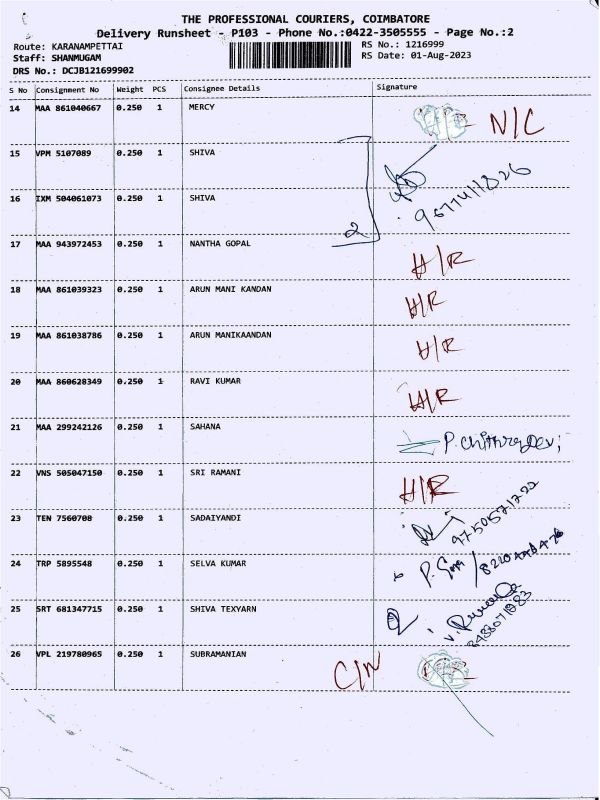 THE PROFESSIONAL COURIERS, COIMBATORE
Delivery Runsheet - P103 - Phone No.:0422-3505555 - Page No.:2
Route: KARANAMPETTAI RS No.: 1216999
Staff: SHANMUGAM RS Date: 01-Aug-2023
DRS No.: DCJB121699902
S No Consignment No Weight PCS Consignee Details Signature
14 MAA 861040667 0.250 1 MERCY N/C
15 VPM 5107089 0.250 1 SHIVA
16 IXM 504061073 0.250 1 SHIVA 9677411826
2
17 MAA 943972453 0.250 1 NANTHA GOPAL H/R
18 MAA 861039323 0.250 1 ARUN MANI KANDAN H/R
19 MAA 861038786 0.250 1 ARUN MANIKAANDAN H/R
20 MAA 860628349 0.250 1 RAVI KUMAR H/R
21 MAA 299242126 0.250 1 SAHANA P. Chithra Devi
22 VNS 505047150 0.250 1 SRI RAMANI H/R
23 TEN 7560708 0.250 1 SADAIYANDI 9750571722
24 TRP 5895548 0.250 1 SELVA KUMAR
25 SRT 681347715 0.250 1 SHIVA TEXYARN
26 VPL 219780965 0.250 1 SUBRAMANIAN C/N